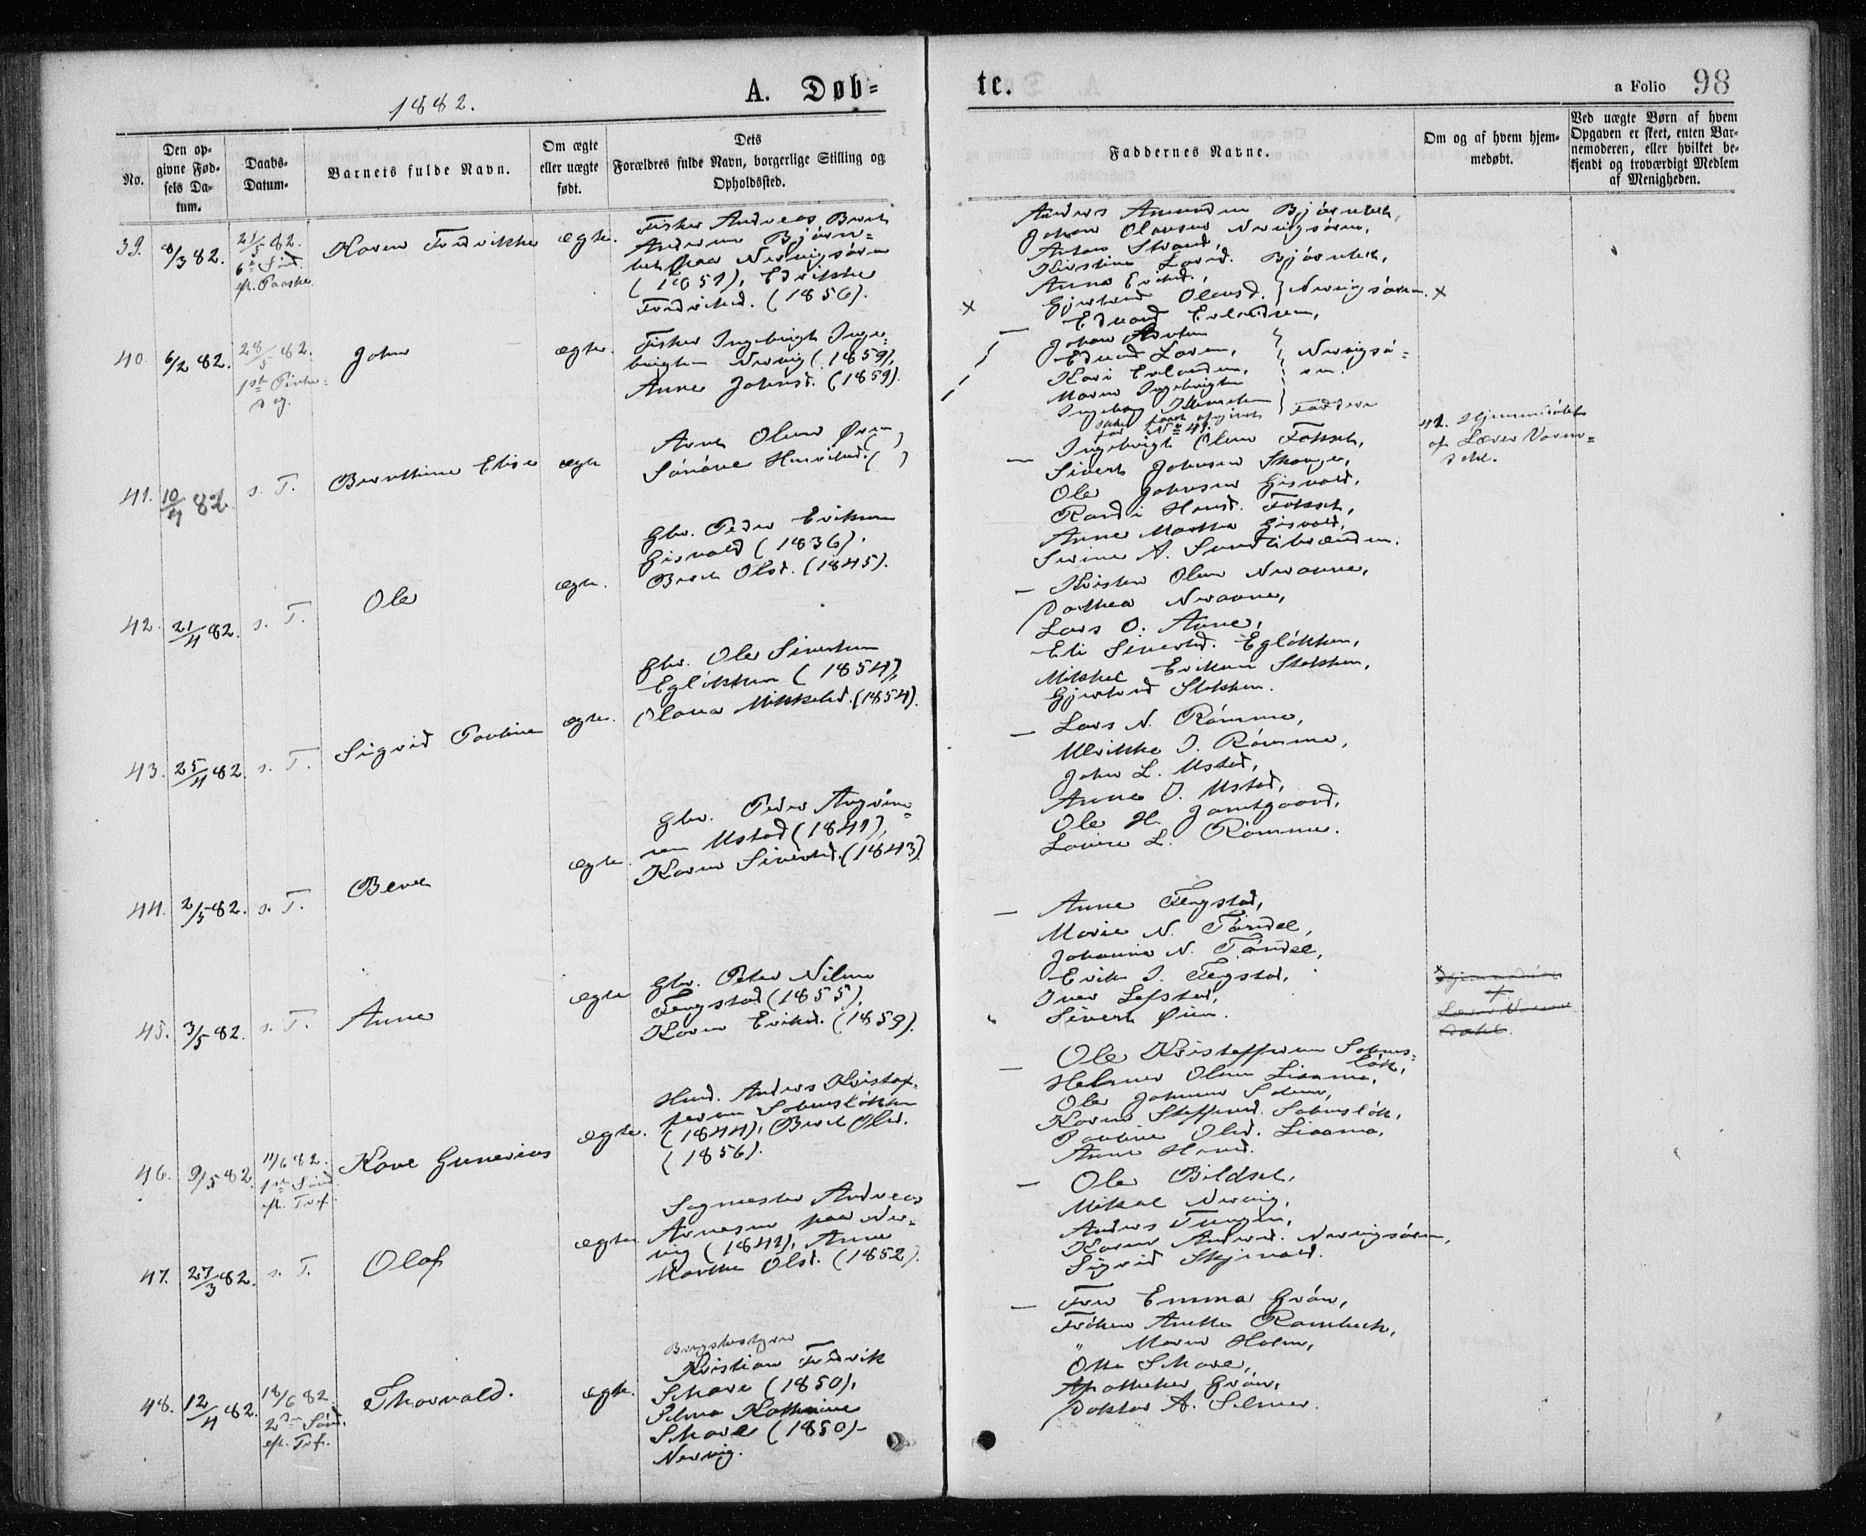 1882.
A. Døb=
te.
a Folio 98
No.
Den op-
givne Fød-
sels Da-
tum.
Daabs-
Datum.
Barnets fulde Navn.
Om ægte
eller uægte
født.
Dets
Forældres fulde Navn, borgerlige Stilling og
Opholdssted.
Faddernes Navne.
Om og af hvem hjem-
medøbt.
Ved uægte Børn af hvem
Opgaven er skeet, enten Bar-
nemoderen, eller hvilket be-
kjendt og troværdigt Medlem
af Menigheden.
39. 8/3 82.
21/5 82.
6te Sønd.
eft. Paaske
Karen Fredrikke
ægte.
Fisker Andreas Bernt
Andersen Bjørn=
bek paa Nervigsøren
Edrikke
Fredriksd. (1856).
Anders Amundsen Bjørnbek,
Johan Olausen Nervigsøren,
Anton Strand,
Kirstine Larsd. Bjørnbek,
Anna Eriksd.,
Gjertrud Olausd. Nervigsøren. x
40. 6/2 82.
28/5 82.
1ste Pintse=
dag.
John
ægte.
Fisker Ingebrigt Inge=
brigtsen Nervig (1859),
Anne Johnsd. (1859).
Eduard Larsen,
Kari Erlandsen,
Maren Ingebrigtsen
Nervigsø=
ren.
Faddere
No 41.
41. 10/4 82
s. T.
Bernthine Elise
ægte
Arnt Olsen Øien ( )
Ingebrigt Olsen Fokset,
Sivert Johnsen Skauge,
Ole Johnsen Gisvold,
Randi Hansd. Fokset,
Anne Marthe Gisvold,
41. Hjemmedøbt
af Lærer Varm=
dahl.
42. 21/4 82.
s. T.
Ole
ægte.
Gbr. Peder Eriksen
Gisvold (1836).
Berit Olsd. (1845).
Kristen Olsen Neraune,
Dorthea Neraune,
Lars O. Aune,
Eli Sivertsd. Egløkken,
Mikkel Eriksen Stokken,
Gjertrud Stokken.
43. 25/4 82.
s. T.
Sigrid Pauline
ægte.
Gbr. Ole Sivertsen
Egløkken (1854),
Olava Mikkelsd. (1854).
Lars N. Rømme,
Ulrikke J. Rømme,
John L. Ustad,
Anne J. Ustad,
Ole H. Jamtgaard,
Lovise L. Rømme.
44. 2/5 82.
s. T.
Beret
ægte.
Gbr. Peder Angrim=
sen Ustad (1841),
Karen Sivertsd. (1843).
Anne Fergstad,
Marie N. Tøndel,
Johanna N. Tøndel,
Erik J. Fergstad,
Iver Lefstad,
Sivert Øien.
45. 3/5 82.
s. T.
Anne
ægte
Gbr. Peter Nilsen
Fergstad (1855),
Karen Eriksd. (1859).
Ole Kristoffersen Solems=
løk,
Helmer Olsen Lisamo,
Ole Johnsen Solem,
Karen Steffensd. Solemsløk,
Pauline Olsd. Lisamo,
Anne Hansd.
46. 9/5 82.
11/6 82.
1ste Sønd.
eft. Tref.
Kare Gunerius
ægte.
Husd. Anders Kristof-
fersen Solemsløkken
(1844), Berit Olsd.
(1856).
Ole Bildset,
Mikal Nervig,
Anders Tungen,
Karen Andersd. Nervigsøren,
Sigrid Skjevald.
47. 27/3 82.
s. T.
Olaf
ægte
Sagmester Andreas
Arnesen paa Ner=
vig (1842), Anne
Marthe Olsd. (1852).
Fru Emma Grøn,
Frøken Anette Rambech,
" Maren Holm,
Otto Schare,
Apotheker Grøn,
Doktor A. Selmer.
48. 12/4 82.
18/6 82.
2den Sønd.
eft. Tref.
Thorvald.
ægte.
Brugsbestyrer
Kristian Fredrik
Schare (1850),
Selma Kathrine
Schare (1850)
Nervig.